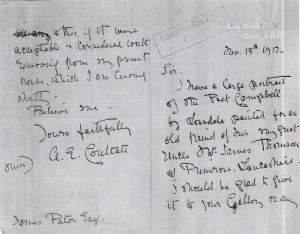 Nov. 18th 1912.
Sir.
I have a large portrait
of the Poet Campbell
by Lonsdale painted for an
old friend of his my great
Uncle Mr. James Thomson
of Primrose, Lancashire.
I should be glad to give
it to your Gallery or any
other, if it were
acceptable & considered worth
removing from my present
house, which I am leaving
shortly.
Believe me
Yours faithfully
(Miss) A. E. Coultate
James Pator Esq.